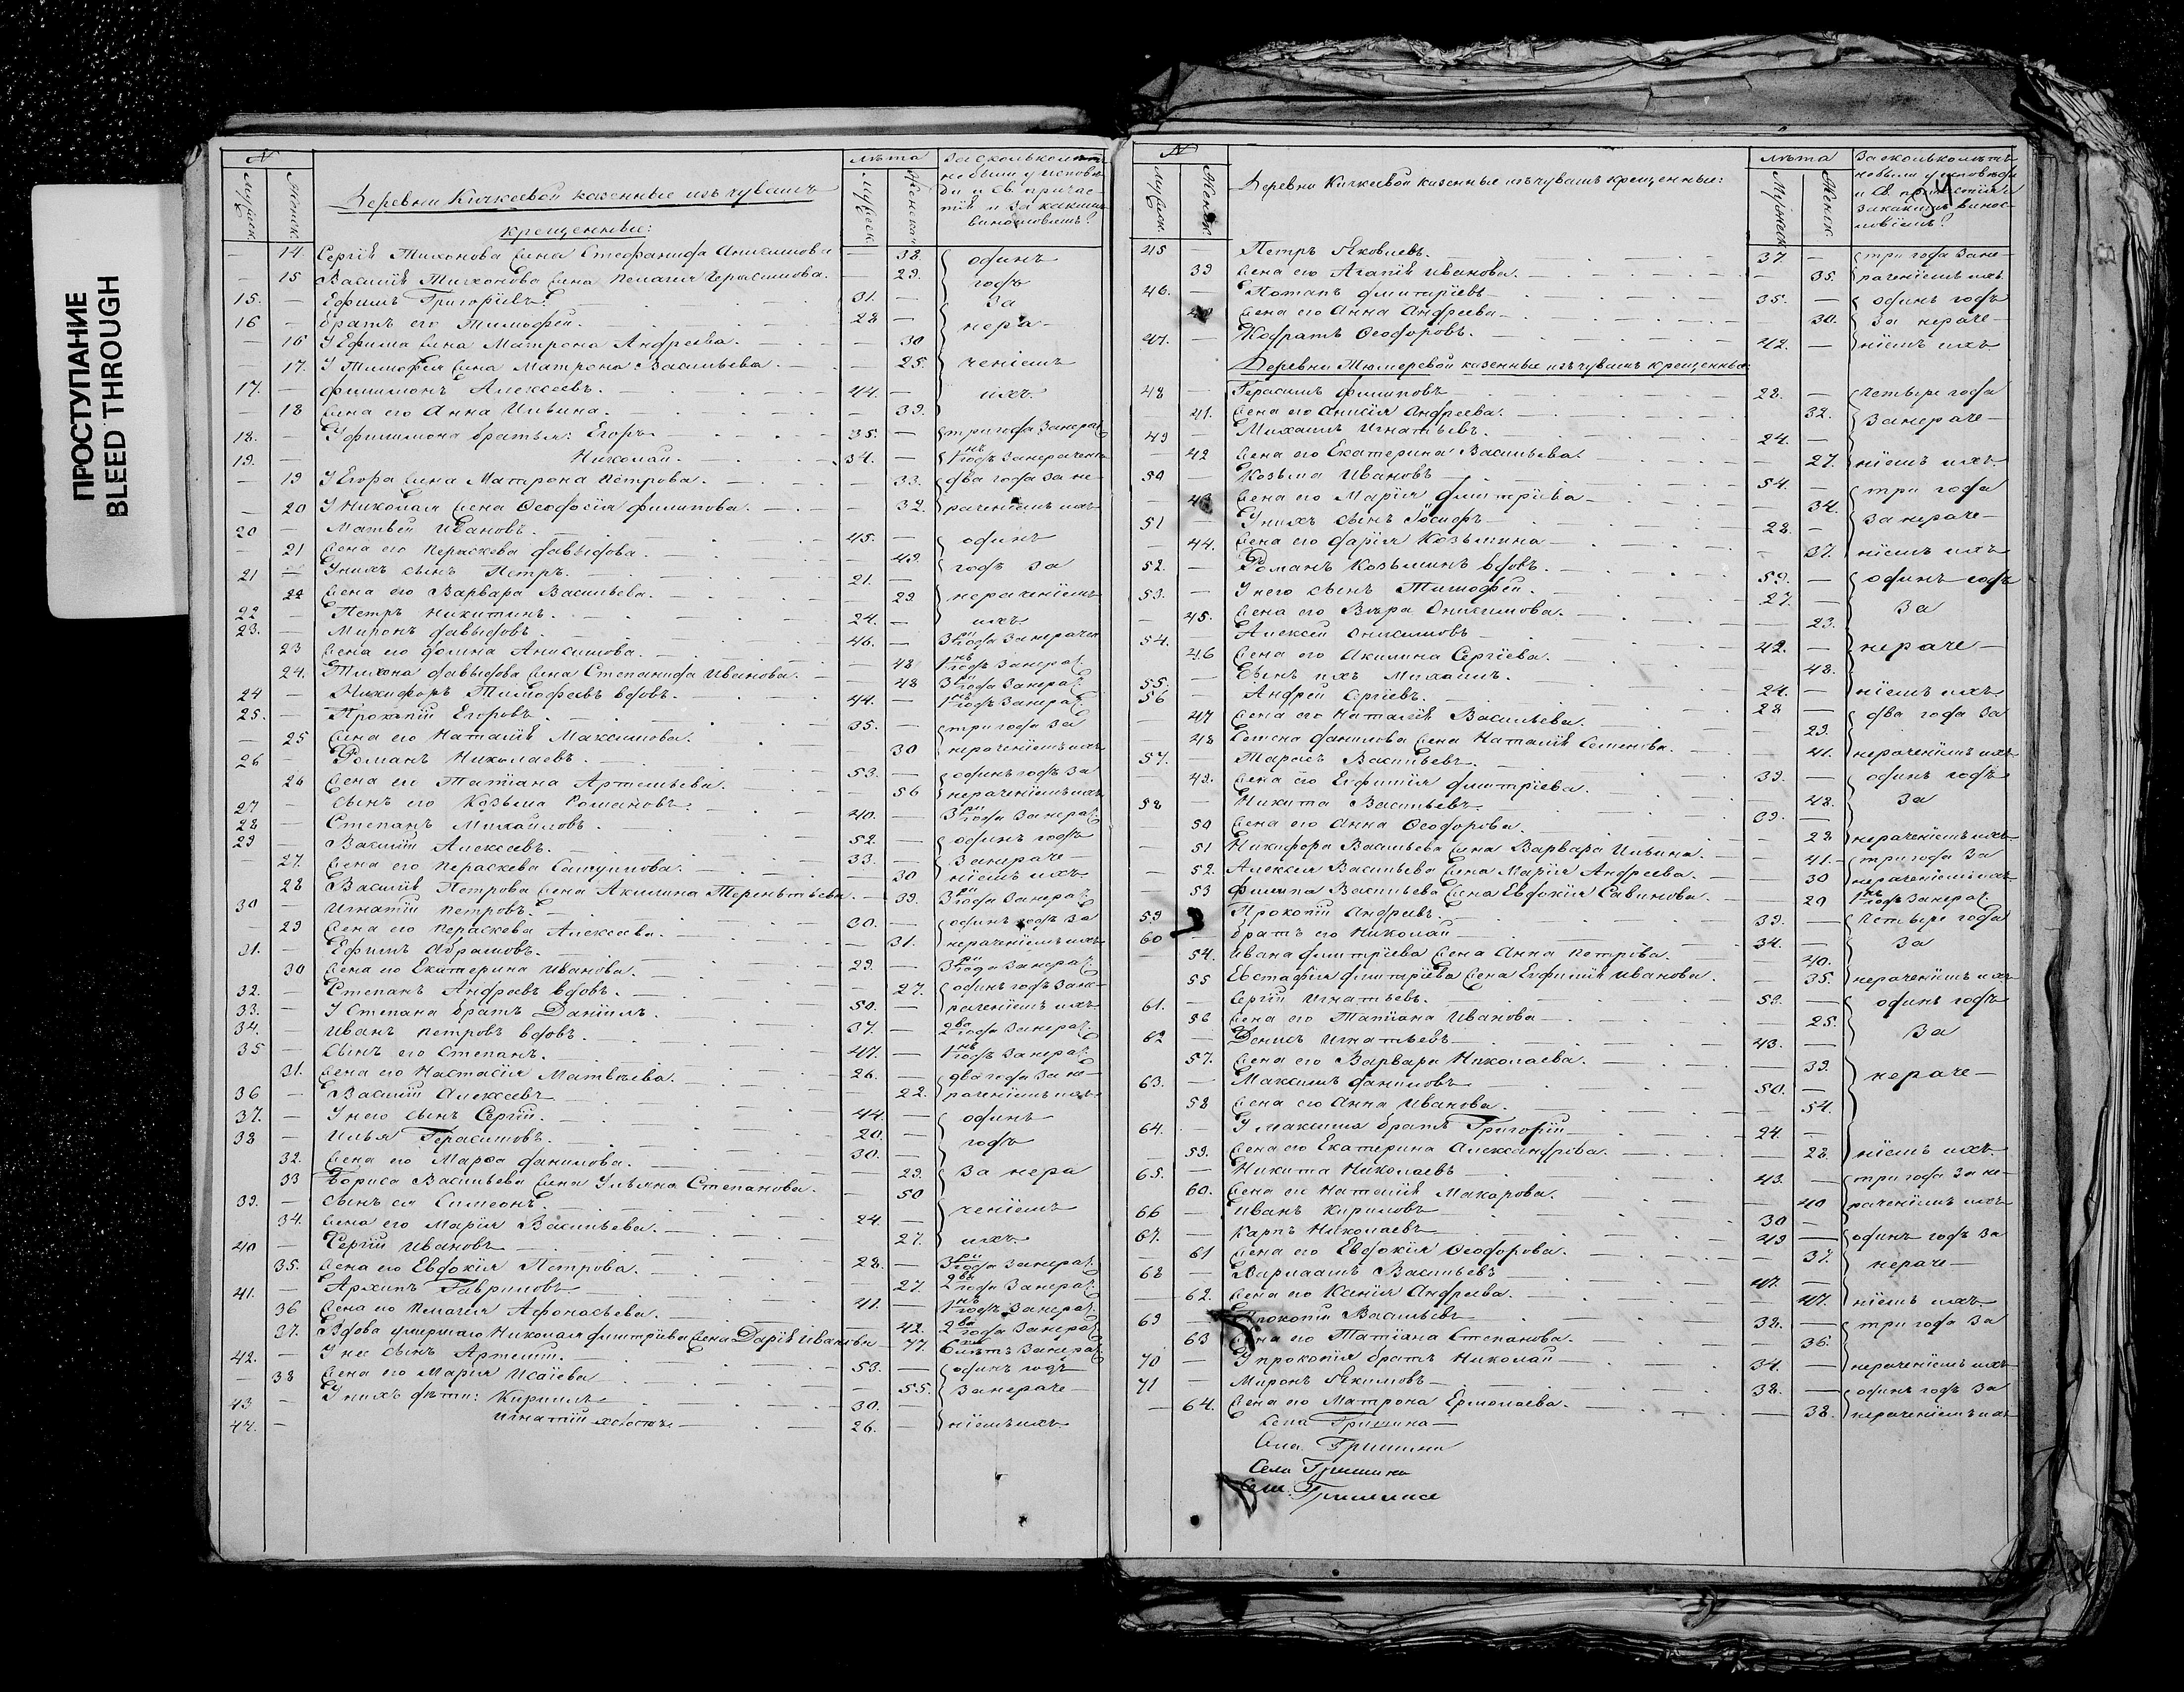 ПРОСТУПАНИЕ
BLEED THROUGH
№
Мужск.
Женск.
Деревни Кичкеевой казенные изъ чувашъ
крещенные:
лѣта
Мужеск.
Женскаго
За сколько лѣтъ
не были у исповѣ-
ди и Св. причас-
тія и за какимъ
винословіемъ?
— 14. Сергія Тихонова жена Стефанида Анисимова — 38. один
— 15 Василія Тихонова жена Пелагия Герасимова. — 29. годъ
15. — Ефимъ Григорьевъ. 31. — за
16 — братъ его Тимофей. 28 — нера-
— 16 У Ефима жена Матрона Андреева. — 30
— 17. У Тимофея жена Матрона Васильева. — 25. ченіемъ
17. — Филимонъ Алексеевъ. 44. — ихъ.
— 18 жена его Анна Ильина. — 39.
18. — У Филимона братья: Егоръ 35. — три года за нерач
19. — Николай. 34. — 1нъ годъ за нерачені
— 19 У Егора жена Матрона Петрова. — 33. два года за не-
— 20 У Николая жена Ѳеодосія Филипова. — 32. раченіемъ ихъ
20 — Матвей Ивановъ. 45. — одинъ
— 21 жена его Параскева Давыдова. — 49. годъ за
21 — У нихъ сынъ Петръ. 21. —
22 жена его Варвара Васильева. — 29. нераченіемъ
22 — Петръ Никитинъ. 24. — ихъ
23. — Миронъ Давыдовъ 46. — 3ри года за нерачен
23 жена его Домна Анисимова. — 48 1нъ годъ за нерач.
24. Тихона Давыдова жена Степанида Иванова. — 48 3ри года за нерач.
24 — Никифоръ Тимофеевъ вдовъ. 44. — 1нъ годъ за нерач.
25. — Прокопій Егоровъ. 35. — три года за
— 25 жена его Наталія Максимова. — 30 нераченіемъ ихъ
26 — Романъ Николаевъ. 53. — одинъ годъ за
26 жена его Татіана Артемьева. — 56 нераченіемъ ихъ
27 — сынъ его Козьма Романовъ. 40. — 3ри года за нерач.
28 — Степанъ Михайловъ. 52. — одинъ годъ
29 — Василій Алексеевъ. 33. — за нераче-
27. жена его Параскева Самуилова. — 30 ніемъ ихъ
28 Василія Петрова жена Акилина Терентьева — 39. 3ри года за нерач.
30 — Игнатій Петровъ. 30. — одинъ годъ за
29 жена его Параскева Алексеева. — 31. нераченіемъ ихъ
31. — Ефимъ Абрамовъ. 29. — 3ри года за нерач.
30 жена его Екатерина Иванова. — 27. одинъ годъ за не-
32. — Степанъ Андреевъ вдовъ. 50. — раченіемъ ихъ
33. — У Степана братъ Даніилъ. 37. — 2ва года за нерач.
34. — Иванъ Петровъ вдовъ. 47. — 1нъ годъ за нерач.
35 — сынъ его Степанъ. 26. — два года за не-
31. жена его Настасія Матвеева. — 22. раченіемъ ихъ
36 — Василій Алексеевъ 44. — одинъ
37. — У него сынъ Сергій. 20. — годъ
38 — Илья Герасимовъ. 30. —
32. жена его Марѳа Данилова. — 29. за нера
33 Бориса Васильева жена Ульяна Степанова. — 50
39. — сынъ ея Симеонъ. 24. — ченіемъ
34. жена его Марія Васильева. — 27. ихъ.
40 — Сергій Ивановъ 28. — 3ри года за нерач.
35. жена его Евдокія Петрова. — 27. 2ва года за нерач.
41. — Архипъ Гавриловъ 41. — 1нъ годъ за нерач.
36 жена его Пелагия Афонасьева. — 42. 2ва года за нерач.
37. Вдова умершаго Николая Дмитріева жена Дарія Иванова — 77. 6 лѣтъ за нерач.
42. — У нее сынъ Артемій. 53. — одинъ годъ
— 38 жена его Марія Исаіева — 55. за нераче-
43 — У нихъ дѣти: Кирилъ 30. —
44. — Игнатій холостъ 26. — ніемъ ихъ
№
Мужеск.
Женск.
Деревни Кичкеевой казенные изъ чувашъ крещенные:
лѣта
Мужеск.
Женск.
За сколько лѣтъ
не были у исповѣди
и Св. причастія и
за какимъ винос-
ловіемъ?
45 — Петръ Яковлевъ. 37. — три года за не-
39 жена его Агапія Иванова. — 35. раченіемъ ихъ
46. — Потапъ Дмитріевъ 35. — одинъ годъ
40 жена его Анна Андреева — 30. за нераче-
47. — Кодратъ Ѳеодоровъ. 42. — ніемъ ихъ
Деревни Тюмеревой казенные изъ чувашъ крещенные:
48 — Герасимъ Филиповъ 28. — Четыре года
41. жена его Анисія Андреева. — 32. за нераче-
49 — Михаилъ Игнатьевъ. 24. —
— 42 жена его Екатерина Васильева. — 27. ніемъ ихъ
50 — Козьма Ивановъ 54. — три года
— 43 жена его Марія Дмитріева — 34. за нераче-
51 — У нихъ сынъ Іосифъ 28. —
— 44. жена его Дарія Козьмина — 37. ніемъ ихъ
52. — Романъ Козьминъ вдовъ. 59. — одинъ годъ
53. — У него сынъ Тимофей. 27. — за
— 45. жена его Вѣра Онисимова. — 23.
54. — Алексей Онисимовъ 42. — нераче-
46 жена его Акилина Сергіева. — 48.
55. — Сынъ ихъ Михаилъ. 24. — ніемъ ихъ
56 — Андрей Сергіевъ. 28 — два года за
— 47 жена его Наталія Васильева. — 29.
— 48 Семена Данилова жена Наталія Семенова. — 41. нераченіемъ ихъ
57. — Тарасъ Васильевъ. 39. — одинъ годъ
— 49. жена его Евфимія Дмитріева. — 48. за
58 — Никита Васильевъ 39. —
— 50 жена его Анна Ѳеодорова. — 28 нераченіемъ ихъ
— 51 Никифора Васильева жена Варвара Ильина. — 41. три года за
— 52. Алексея Васильева жена Марія Андреева. — 30 нераченіемъ ихъ
— 53 Филипа Васильева жена Евдокія Савинова. — 20 1нъ годъ за нерач.
59 — Прокопій Андреевъ. 39. — Четыре года
60 — братъ его Николай 34. — за
54. Ивана Дмитріева жена Анна Петрова. — 40.
55 Евстафія Дмитріева жена Евфимія Иванова. — 35. нераченіемъ ихъ
61. — Сергій Игнатьевъ. 59. — одинъ годъ
56 жена его Татіана Иванова — 25. за
62 — Денисъ Игнатьевъ 43. —
57. жена его Варвара Николаева. — 39. нераче-
63. — Максимъ Даниловъ 50. —
58 жена его Анна Иванова. — 54.
64. — У Максима братъ Григорій 24. —
59. жена его Екатерина Александрова. — 28. ніемъ ихъ
65. — Никита Николаевъ 43. — три года за не-
60. жена его Наталія Макарова. — 40 раченіемъ ихъ
66 — Иванъ Кириловъ 30 —
67. — Карпъ Николаевъ 49 — одинъ годъ за
61 жена его Евдокія Ѳеодорова. — 37. нераче-
68 — Варлаамъ Васильевъ 47. —
62. жена его Ксенія Андреева. — 47. ніемъ ихъ
69 — Прокопій Васильевъ 38. — три года за
63 жена его Татіана Степанова. — 36.
70 — У Прокопія братъ Николай 34. — нераченіемъ ихъ
71 — Миронъ Якимовъ 38. — одинъ годъ за
— 64. жена его Матрона Ермолаева. — 38. нераченіемъ ихъ
Села Гришина
Села Гришина
Села Гришина
Села Гришина